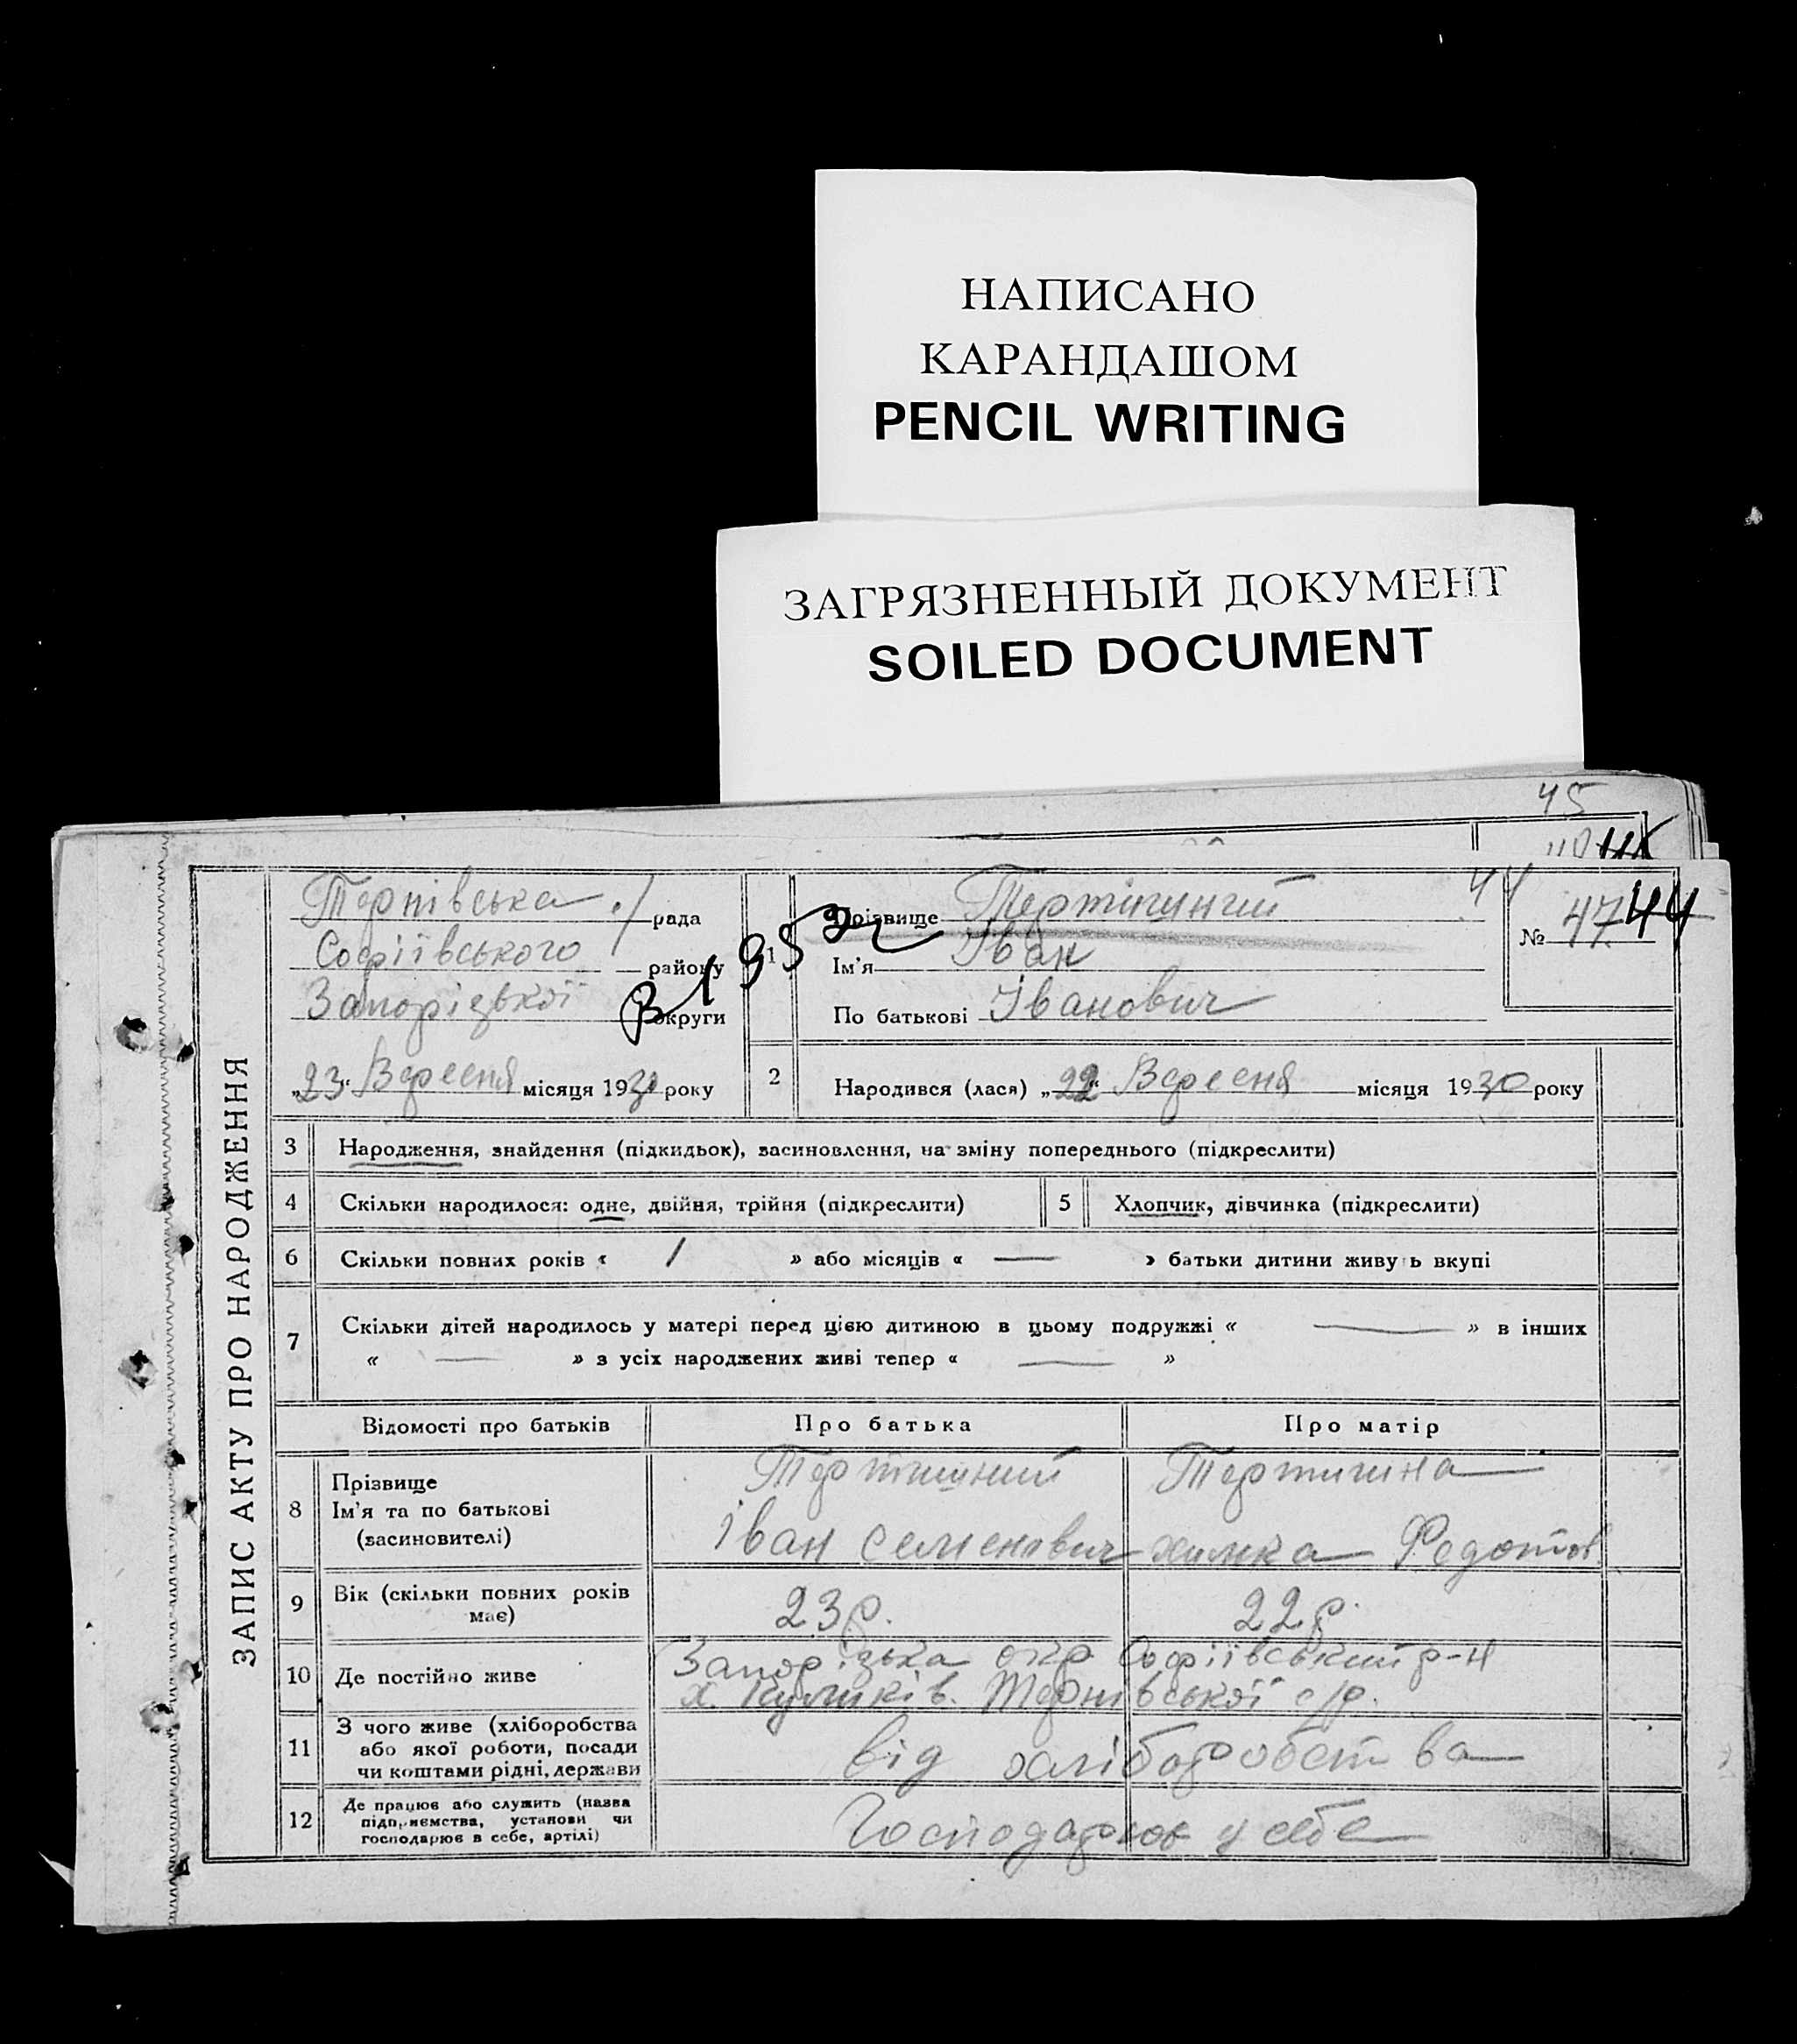 НАПИСАНО
КАРАНДАШОМ
PENCIL WRITING
ЗАГРЯЗНЕННЫЙ ДОКУМЕНТ
SOILED DOCUMENT
45
ЗАПИС АКТУ ПРО НАРОДЖЕННЯ
Тернівська рада
Софіївського району
Запорізької округи
„23“ Вересня місяця 1930 року
1 Прізвище 44
Ім'я Іван
По батькові Іванович
№ 47 44
2 Народився (лася) „22“ Вересня місяця 1930 року
3 Народження, знайдення (підкидьок), засиновлення, на зміну попереднього (підкреслити)
4 Скільки народилося: одне, двійня, трійня (підкреслити)
5 Хлопчик, дівчинка (підкреслити)
6 Скільки повних років « 1 » або місяців « — » батьки дитини живуть вкупі
7 Скільки дітей народилось у матері перед цією дитиною в цьому подружжі « — » в інших
« — » з усіх народжених живі тепер « — »
Відомості про батьків Про батька Про матір
8 Прізвище
Ім'я та по батькові
(засиновителі)
Тертишний
Іван Семенович
Тертишна
Химка Федотов
9 Вік (скільки повних років
має)
23 р. 22 р.
10 Де постійно живе
Запорізька окр Софіївський р-н
х. Куликів. Тернівської с/р.
11 З чого живе (хліборобства
або якої роботи, посади
чи коштами рідні, держави
від хліборобства
12 Де працює або служить (назва
підприємства, установи чи
господарює в себе, артілі)
Господарює у себе